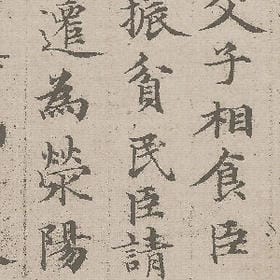 父子相食臣
振貧民臣請
遷為滎陽